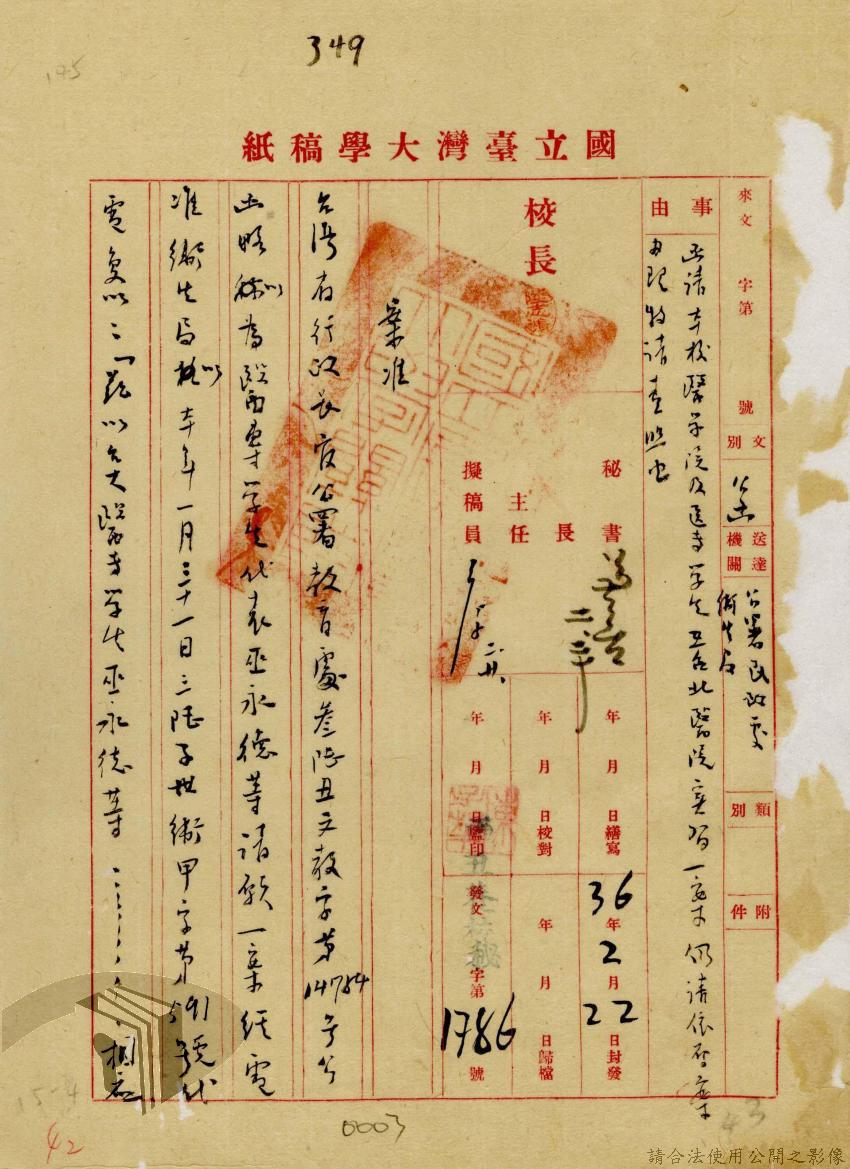 349
195
國立臺灣大學稿紙
來文 字第 號
文別 公函
送達機關 公署民政處
衛生局
類別
附件
事由
函請本校醫學院及醫專學生 台北醫院實習一案仍請依原案
辦理特請查照由
校長
秘書
主任
長
擬稿員
二、二十
年 月 日繕寫
年 月 日校對
年 月 日監印
36年2月22日封發
年 月 日歸檔
發文 字第1786號
案准
台灣省行政長官公署教育處叁陸丑文教字第14784號公
函略以稱為醫專學生代表巫永德等請願一案經電
准衛生局 本年一月三十一日 衛甲字第591號代
電復以：「 以台大醫專學生巫永德等 相應
15-4
42
0003
43
請合法使用公開之影像